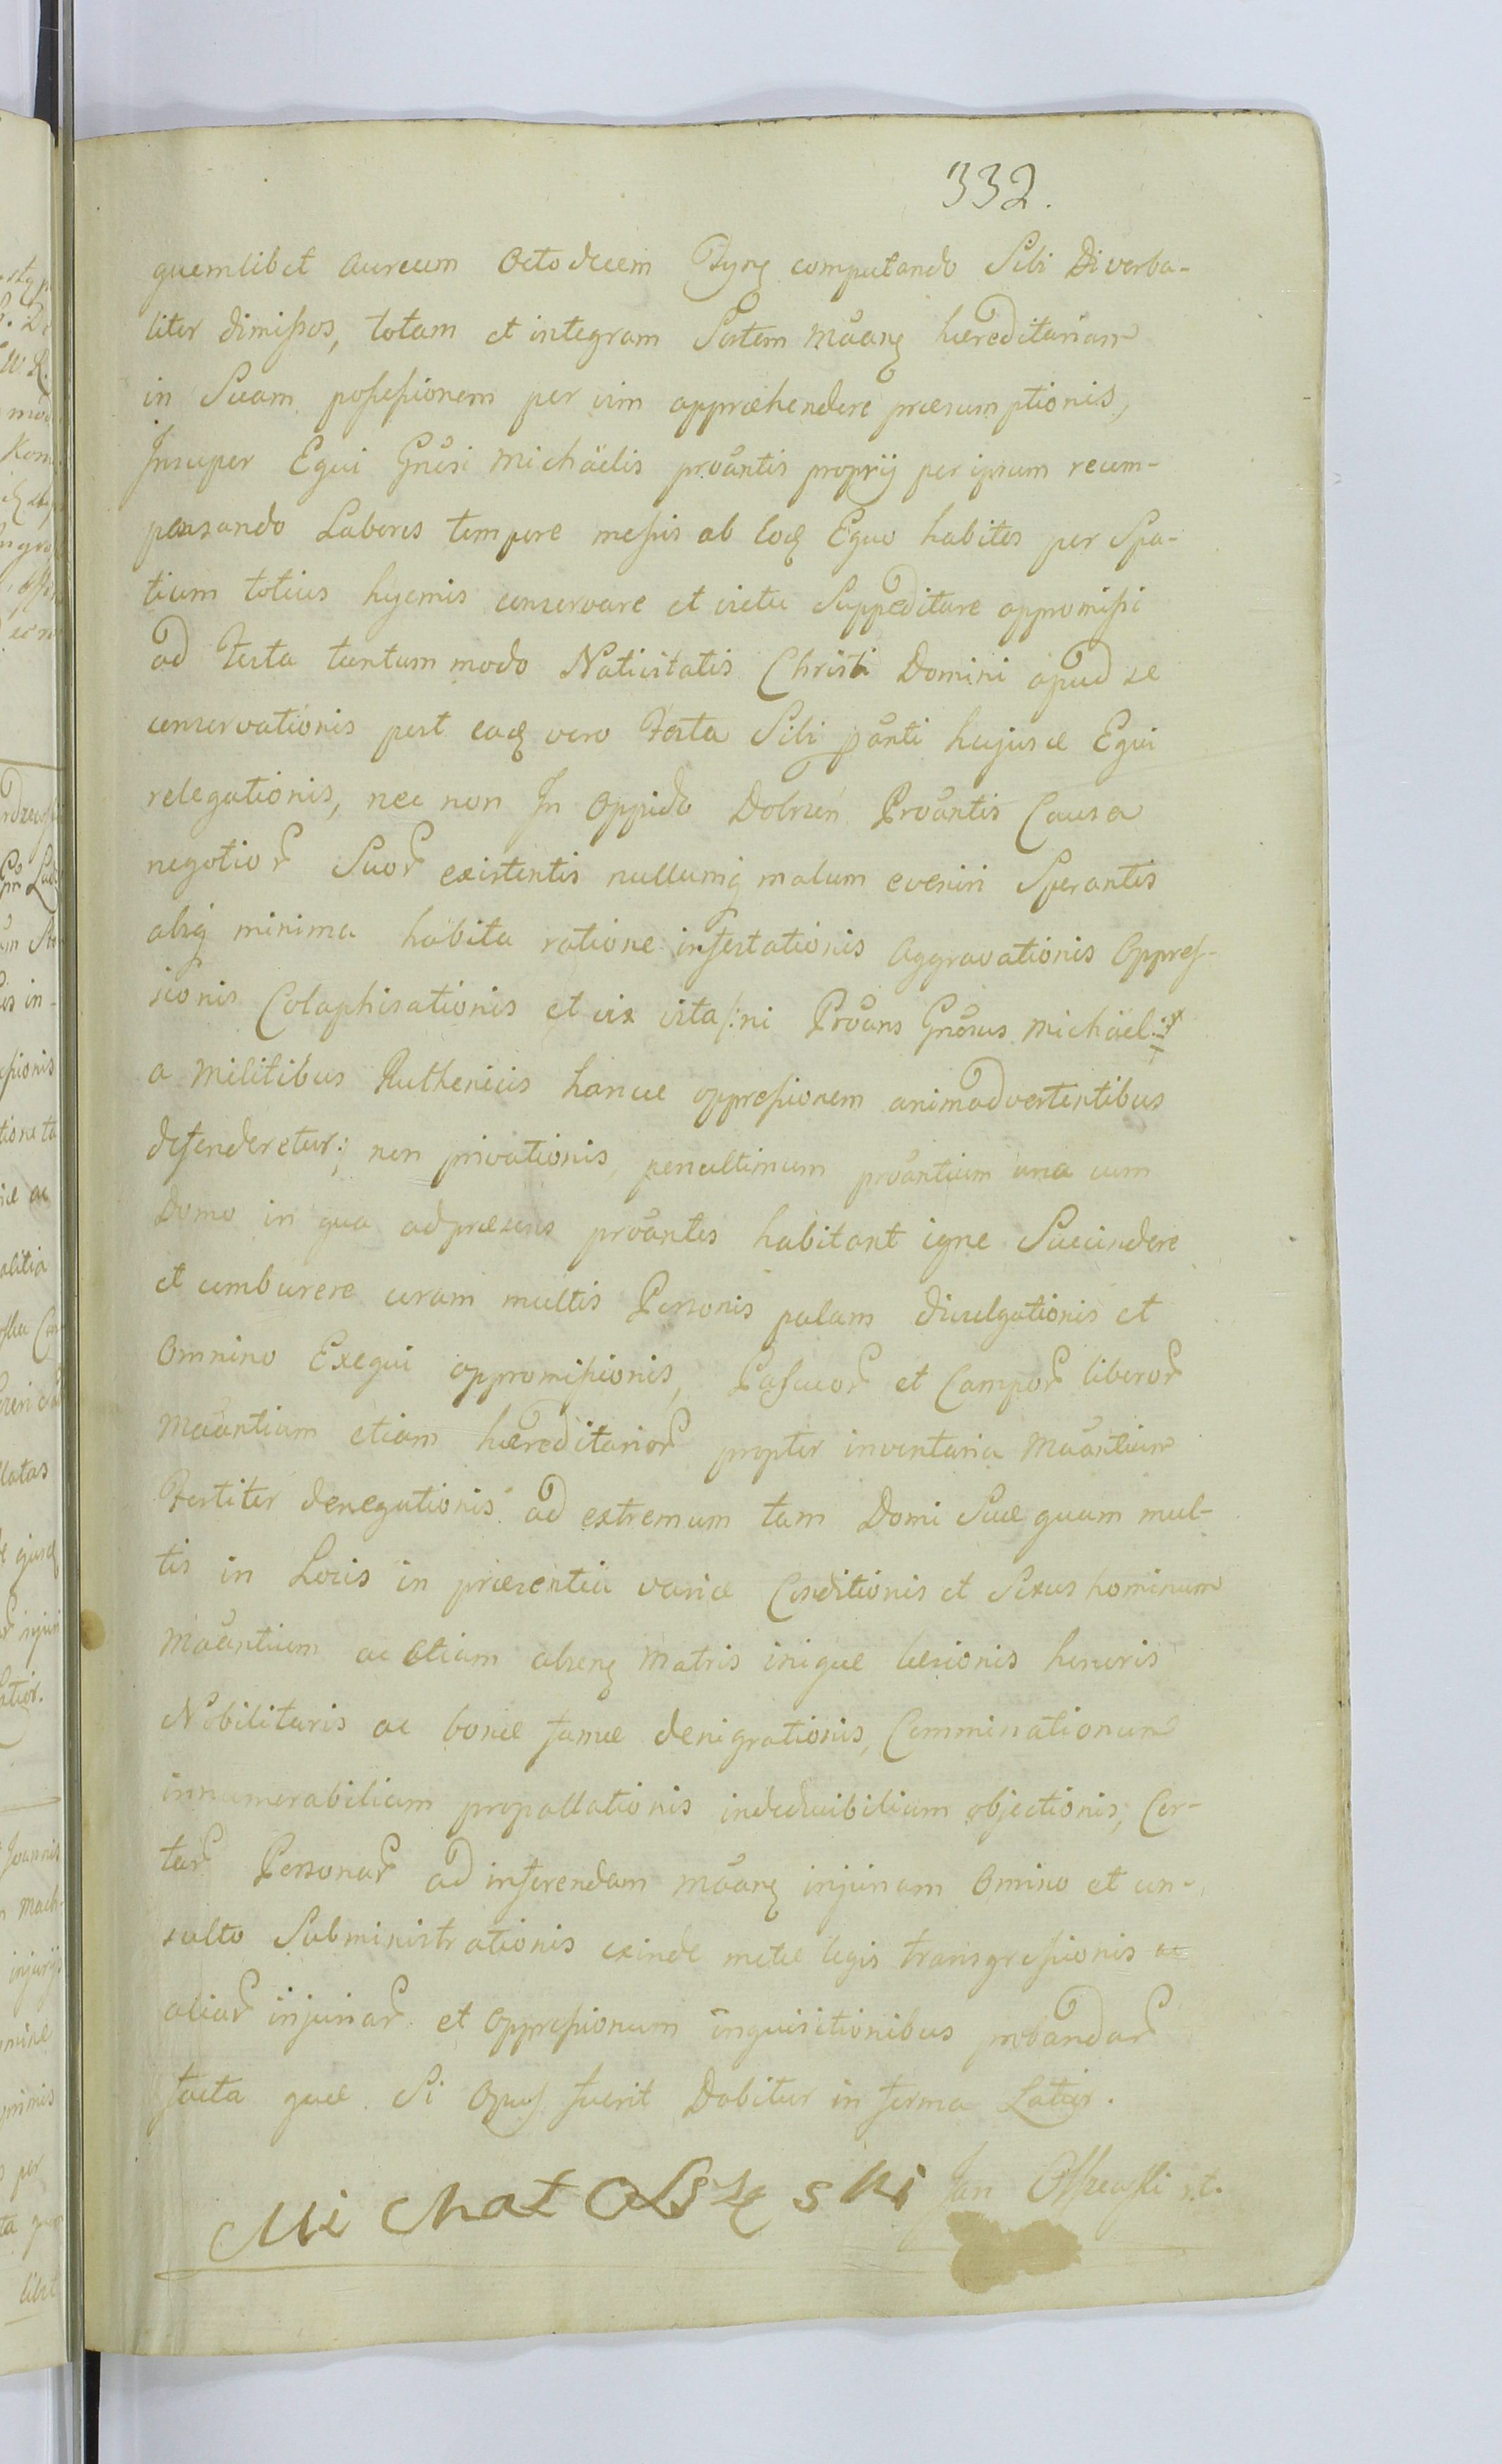 332.
quemlibet aureum Octodecem Tÿnę computando Sibi Diverba-
liter dimissos, totam et integram Sortem Mãanę hæreditariam
in Suam possessionem per vim appræhendere præsumptionis,
Insuper Equi Gnõsi Michäelis prõantis proprij per ipsum recom-
pensando Labores tempore messis ab Eodę Equo habitos per Spa-
tium totius hyemis conservare et victu Suppeditare appromissi
ad Festa tantum modo Nativitatis Christi Domini apud se
conservationis post eadę vero Festa Sibi p̃anti hujusce Equi
relegationis, nec non In Oppido Dobrzÿń Prõantis Causa
negotior̃ Suor̃ existentis nullumq; malum eveniri Sperantis
absq; minima habita ratione infestationis Aggravationis Oppres-
sionis Colaphisationis et vix vita /:ni Prõans Gnõsus Michäel:/
a Militibus Ruthenicis hancce oppressionem animadvertentibus
defenderetur:; non privationis, penultimum prõantium una cum
Domo in qua ad præsens prõantes habitant igne Succindere
et comburere coram multis Personis palam divulgationis et
Omnino Exequi appromissionis, Pascuor̃ et Campor̃ liberor̃
Mãantium etiam hæreditarior̃ propter inventaria Mãantium
Fortiter denegationis ad extremum tam Domi Suæ quam mul-
tis in Locis in præsentia variæ Conditionis et Sexus hominum
Mãantium ac Etiam absenę Matris iniquæ læsionis honoris
Nobilitaris ac bonæ famæ denigrationis, Comminationum
innumerabilium propallationis indeducibilium objectionis, Cer-
tar̃ Personar̃ ad inferendam mãanę injuriam Omino et con-
sulto Subministrationis exinde metæ legis transgressionis ac
aliar̃ injuriar̃ et Oppressionum inquisitionibus probandar̃
facta quæ Si Opus fuerit Dabitur in forma Latior.
Michał Olszęski Jan Olszewski